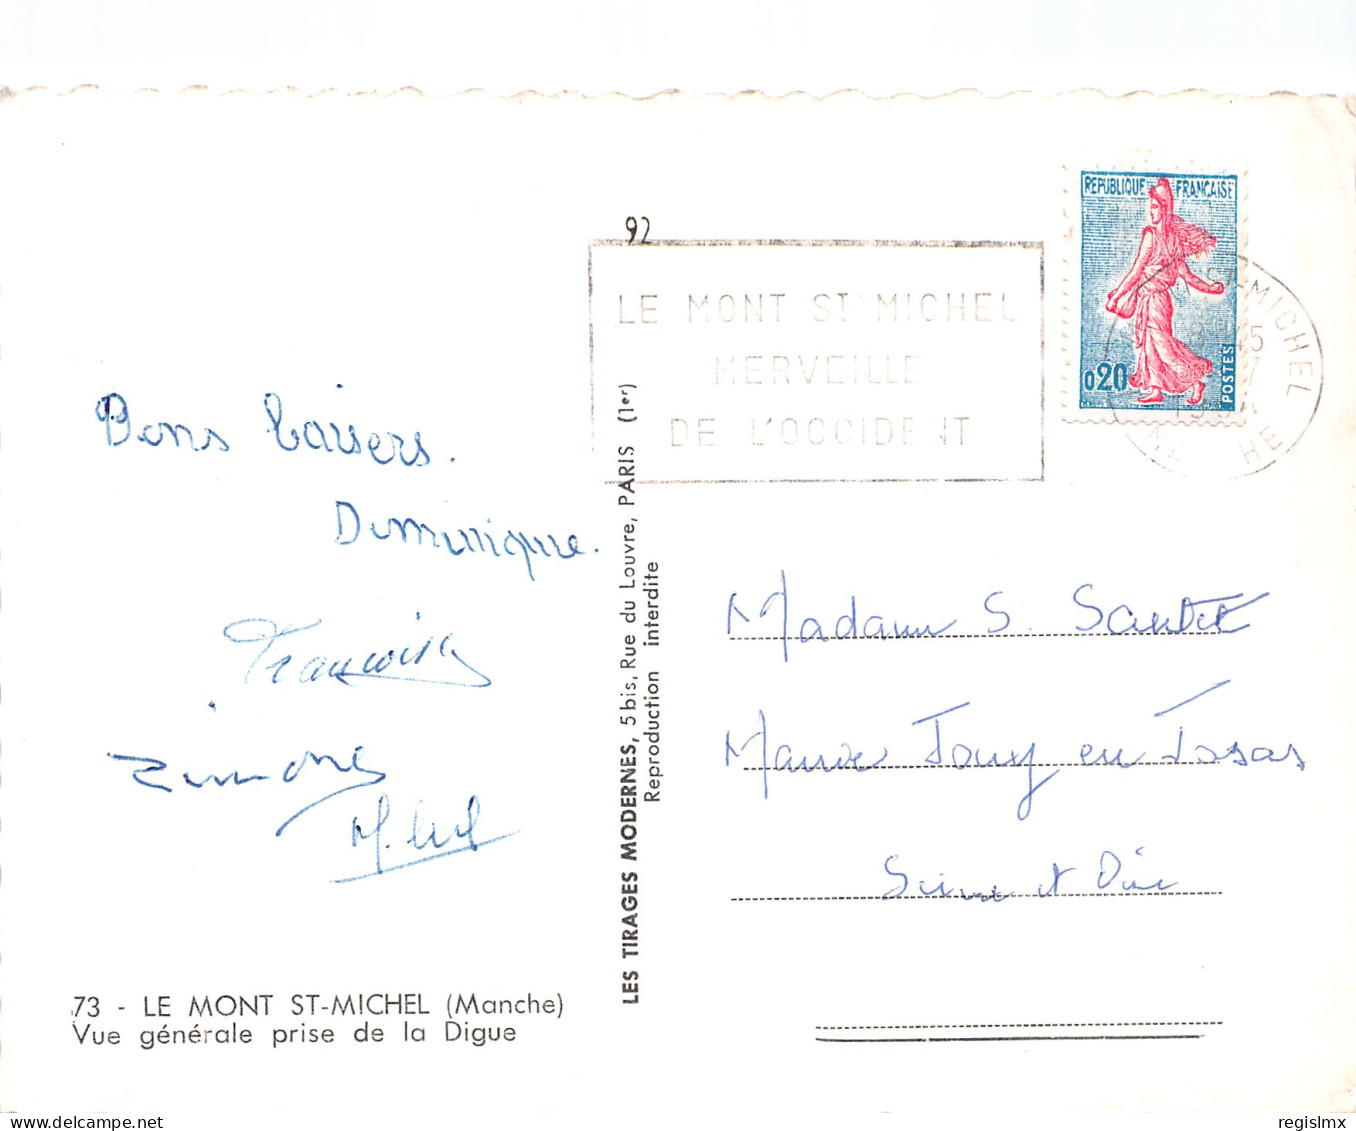 92
REPUBLIQUE FRANÇAISE
0,20
POSTES
LE MONT ST MICHEL
MERVEILLE
DE L'OCCIDENT
ST-MICHEL
Bons baisers.
Dominique.
Françoise
Simone
73 - LE MONT ST-MICHEL (Manche)
Vue générale prise de la Digue
LES TIRAGES MODERNES, 5 bis, Rue du Louvre, PARIS (1er)
Reproduction interdite
Madame S.
Jouy en Josas
Seine et Oise
delcampe.net
regislmx